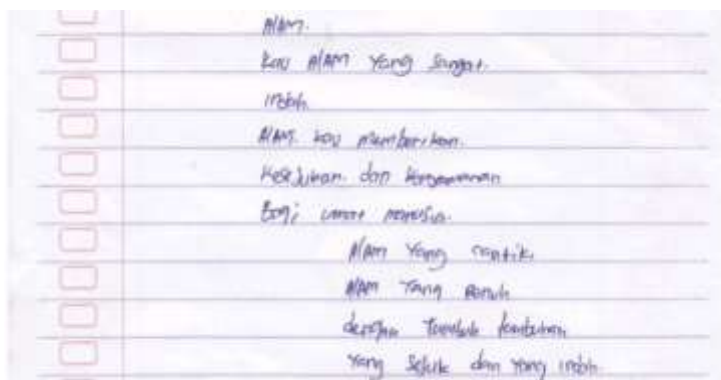 Alam.
Kau Alam yang sangat.
indah
Alam. kau memberikan.
kesejukan. dan kenyamanan
Bagi umat manusia.
Alam yang cantik
Alam yang penuh
dengan
yang sejuk dan yang indah.